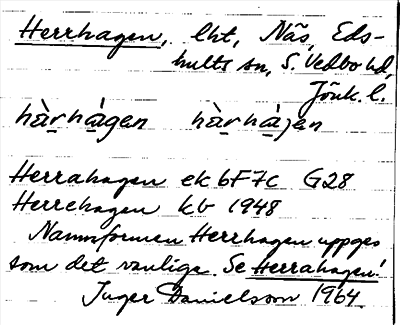 Herrhagen, lht, Näs, Eds-
hults sn, S. Vedbo hd,
Jönk. l.
hàrhàgen hàrhàjen
Herrahagen ek 6F7c G28
Herrehagen kb 1948
Namnformen Herrhagen uppges
som det vanliga. Se Herrahagen!
Inger Danielsson 1964